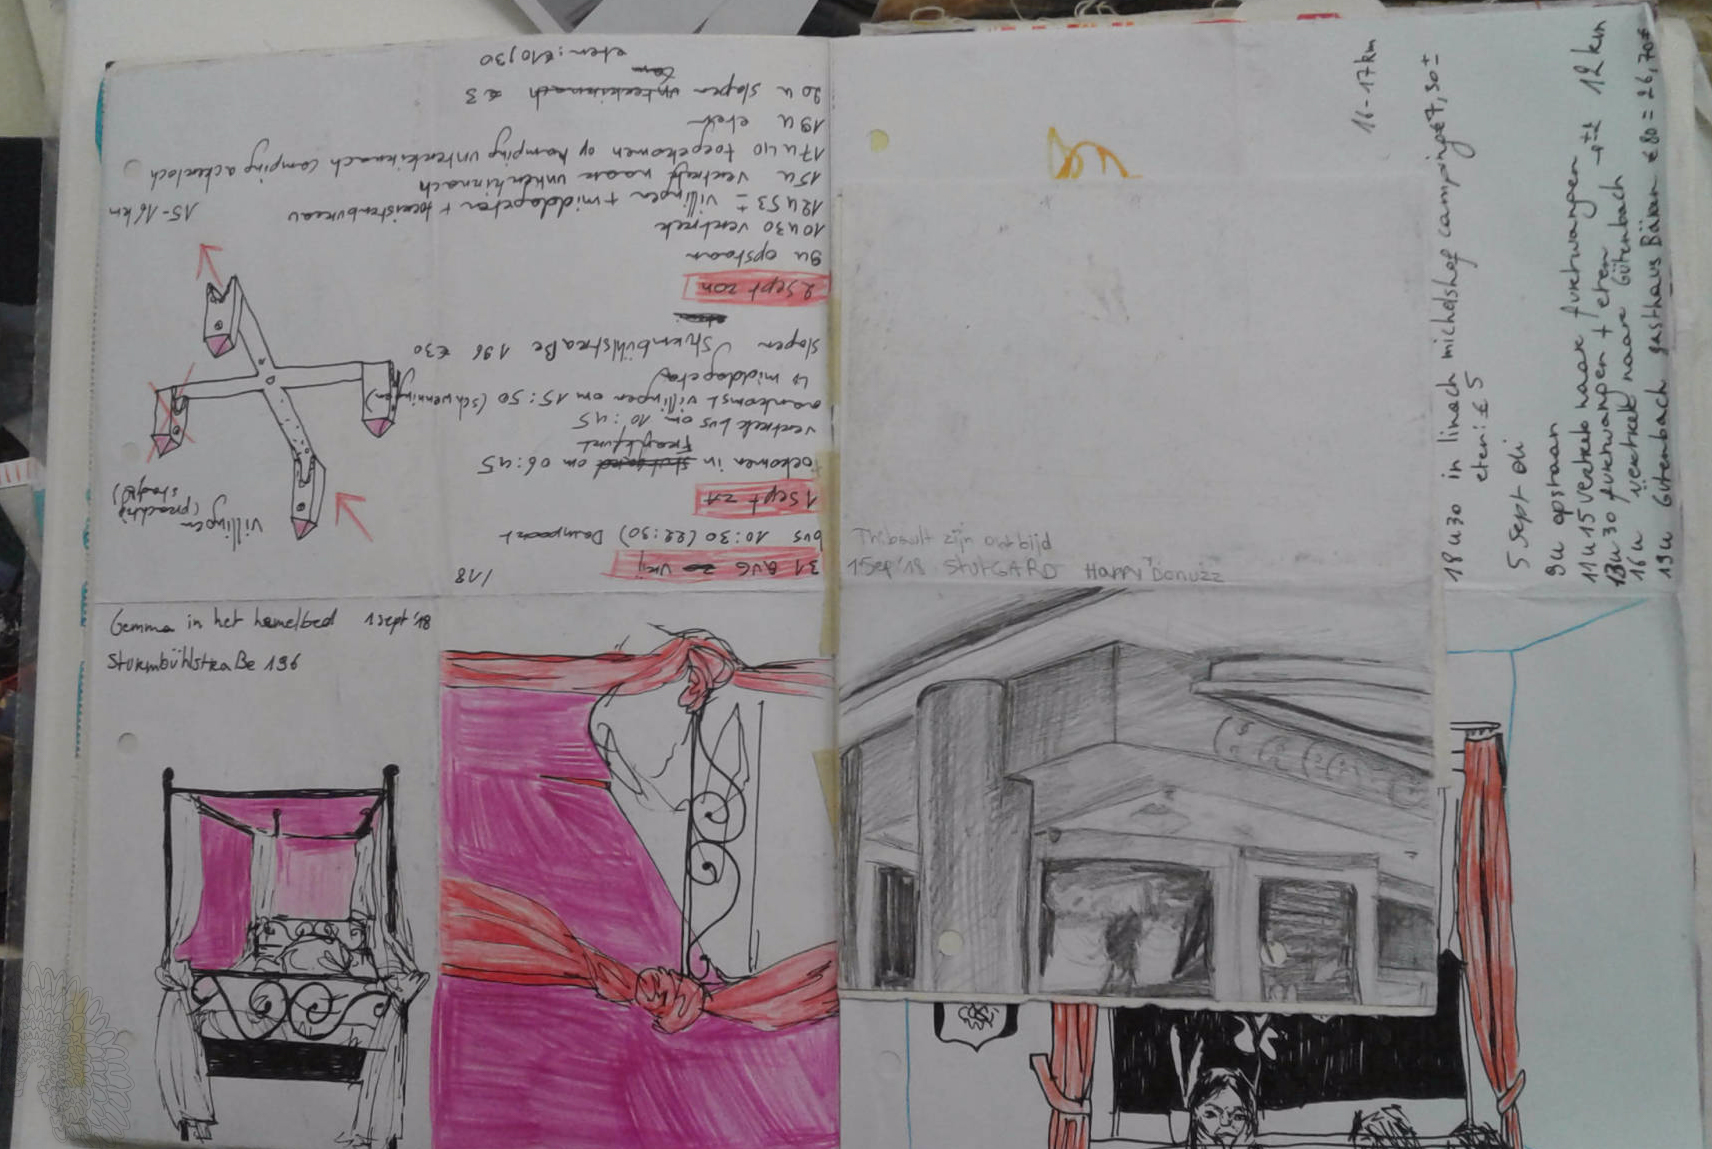 31 AUG vrij /18
bus 10:30 (22:30) Dampoort
1 sept za
toekomen in Frankfurt om 06:45
vertrek bus om 10:45
aankomst villingen om 15:50 (schwenningen)
↳ middageten
slapen Sturmbühlstraße 196 €30
2 sept zon
9u opstaan
10u30 vertrek
12u53 ± villingen + middageten + toeristenbureau
15u vertrek naar unterkirnach
17u40 toegekomen op kamping unterkirnach camping ackerloch
19u eten
20u slapen unterkirnach €3
eten: €10,30
15-16 km
villingen
(prachtige
stad)
Gemma in het hemelbed 1 sept '18
Sturmbühlstraße 196
Thibault zijn ontbijd
1 Sep '18 StutGARD Happy Donuzz
16-17 km
18u30 in linach michelshof camping €7,50 ±
eten: € 5
5 sept di
9u opstaan
11u15 vertrek naar furtwangen
13u30 furtwangen + eten → ± 12 km
16u vertrek naar Gütenbach
19u Gütenbach gasthaus Bären €80 = 26,70€